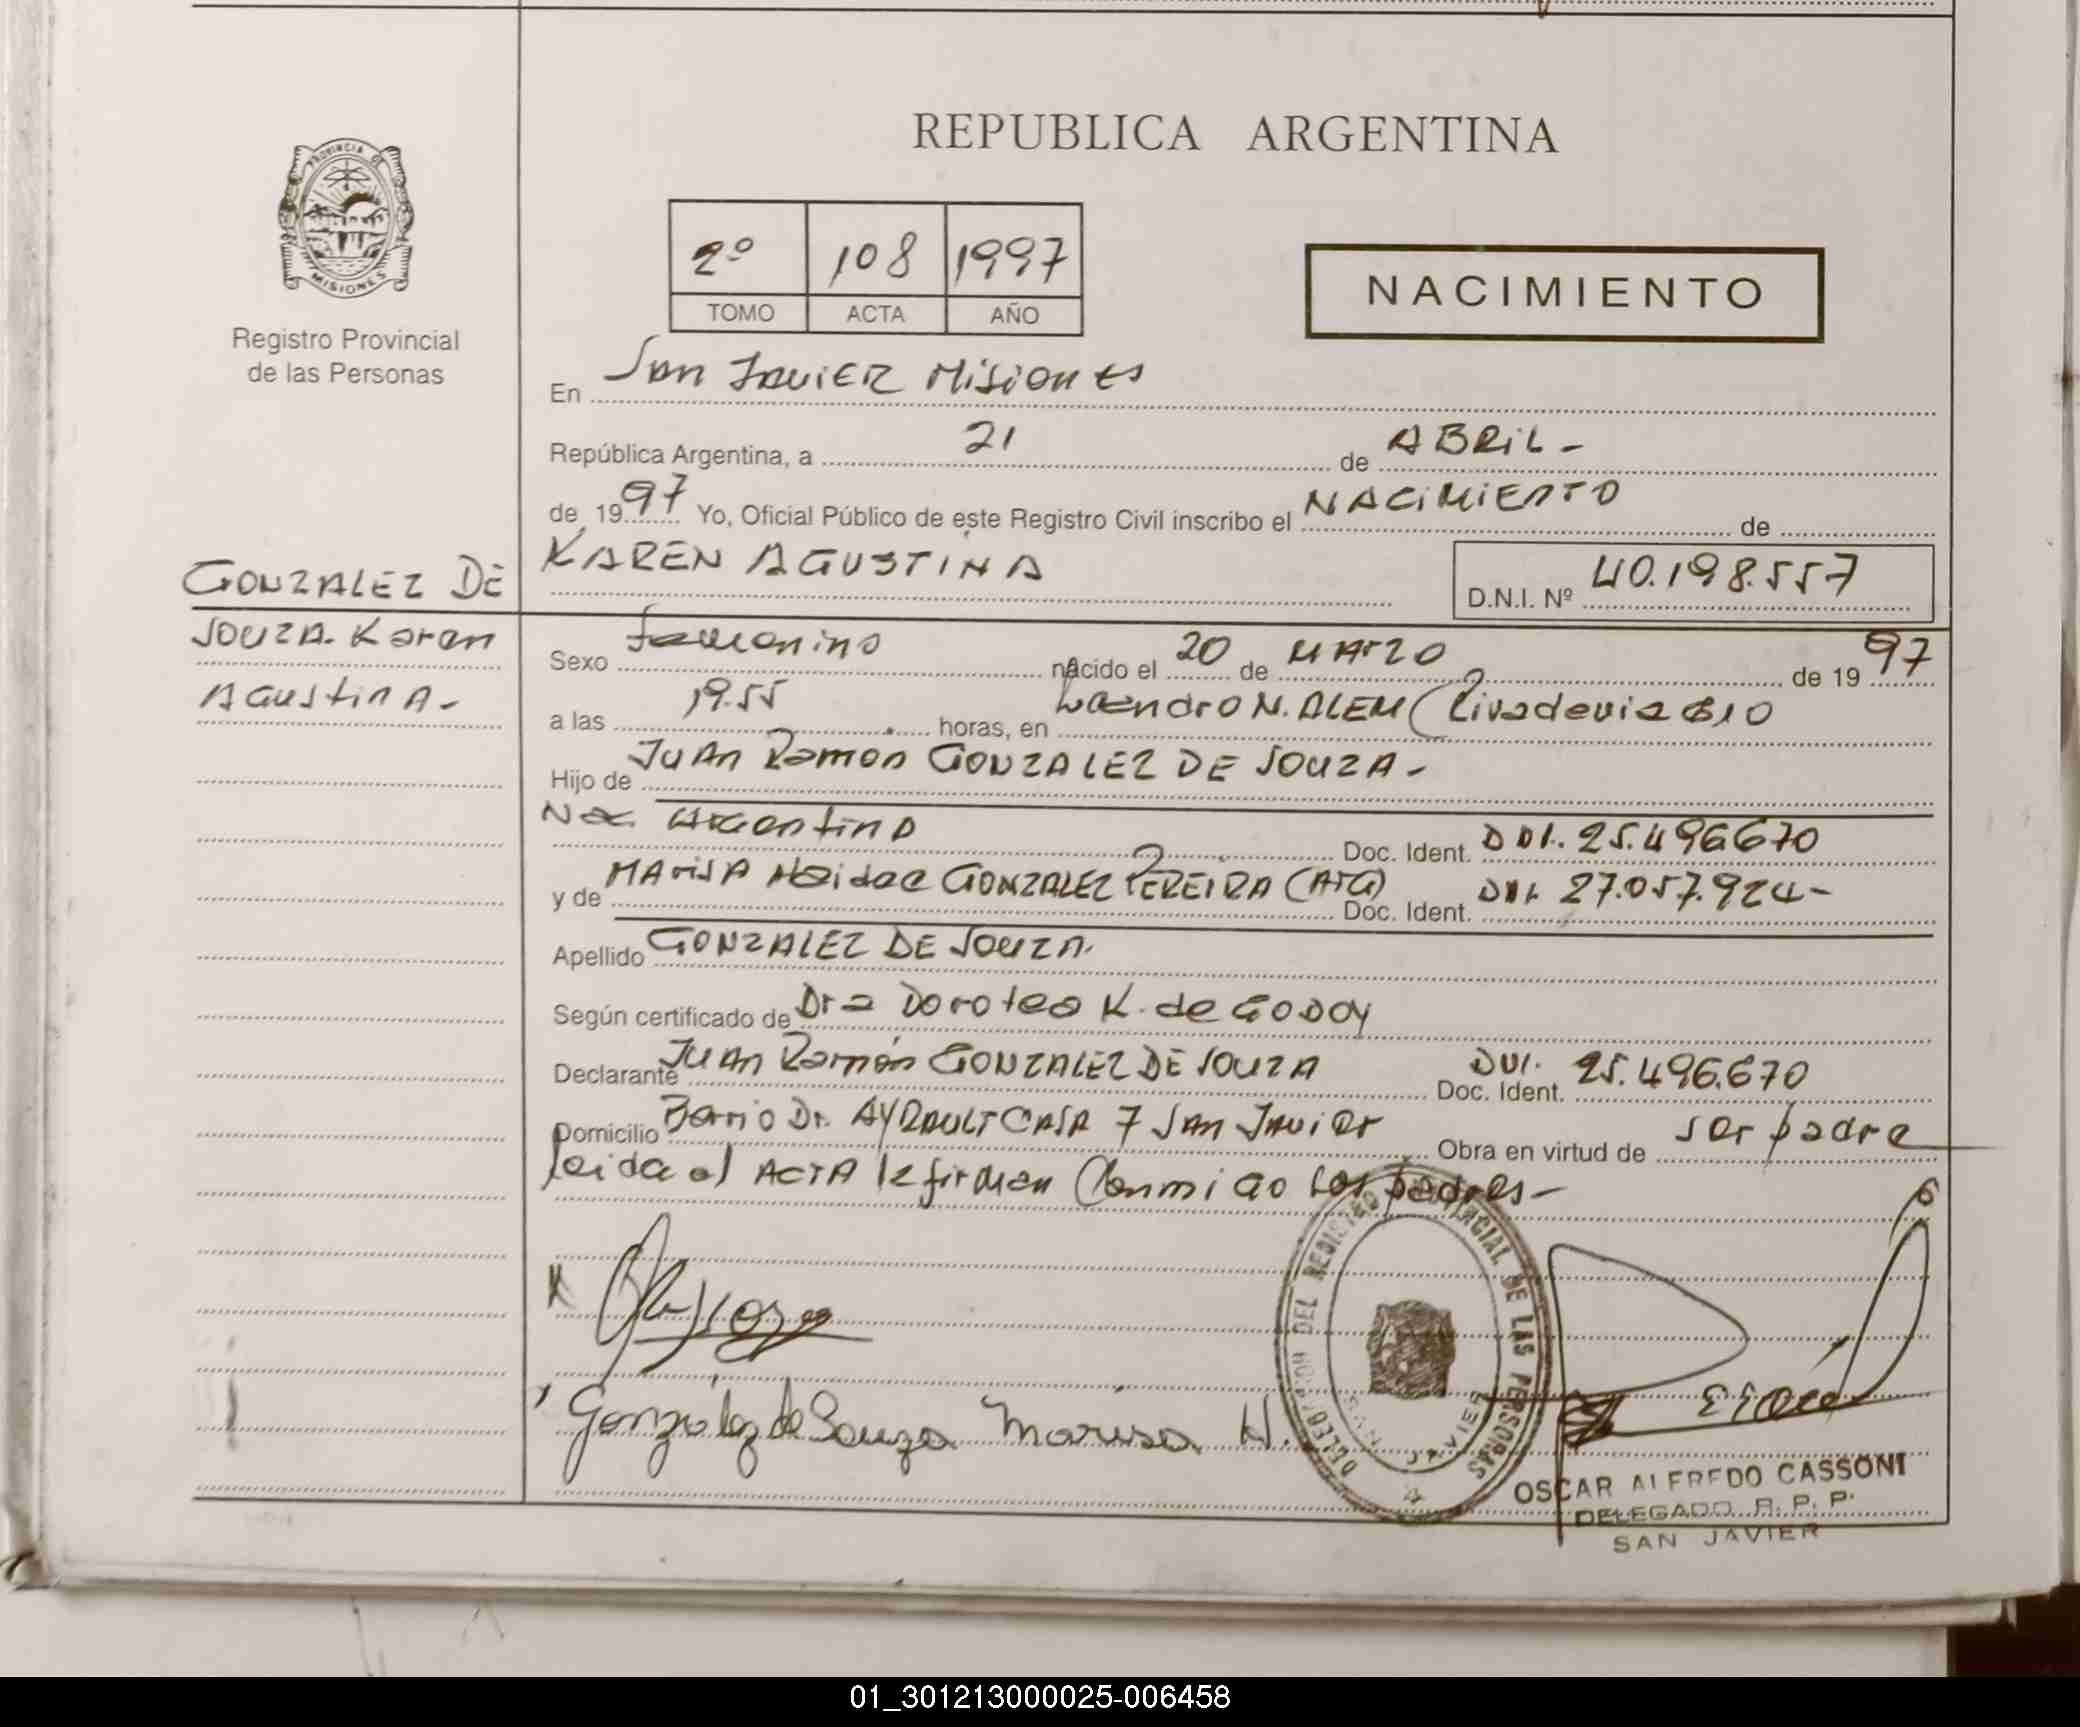 REPUBLICA ARGENTINA
PROVINCIA DE
MISIONES
Registro Provincial
de las Personas
2º 108 1997
TOMO ACTA AÑO
NACIMIENTO
En San Javier Misiones
República Argentina, a 21 de ABRIL -
de 1997 Yo, Oficial Público de este Registro Civil inscribo el NACIMIENTO de
KAREN AGUSTINA
D.N.I. Nº 40.198.557
GONZALEZ DE
SOUZA. Karen
AgustinA-
Sexo femenino nacido el 20 de MArzo de 1997
a las 19.55 horas, en Leandro N. ALEM (Rivadavia 810
Hijo de JuAn Ramon GONZALEZ DE SOUZA-
Nac Argentino Doc. Ident. DNI. 25.496670
y de MArisA GONZALEZ PEREIRA (ArG) Doc. Ident. DNI 27.057.924-
Apellido GONZALEZ DE SOUZA.
Según certificado de Dra Dorotea K. de GODOY
Declarante JuAn Ramón GONZALEZ DE SOUZA Doc. Ident. DNI. 25.496.670
Domicilio Barrio Dr. AYRAULT CASA 7 SAn JAvier Obra en virtud de ser padre
leida el ACTA la firman Conmigo los padres-
González de Souza Marisa H.
DELEGACION DEL REGISTRO PROVINCIAL DE LAS PERSONAS
SAN JAVIER
OSCAR ALFREDO CASSONI
DELEGADO R. P. P.
SAN JAVIER
01_301213000025-006458